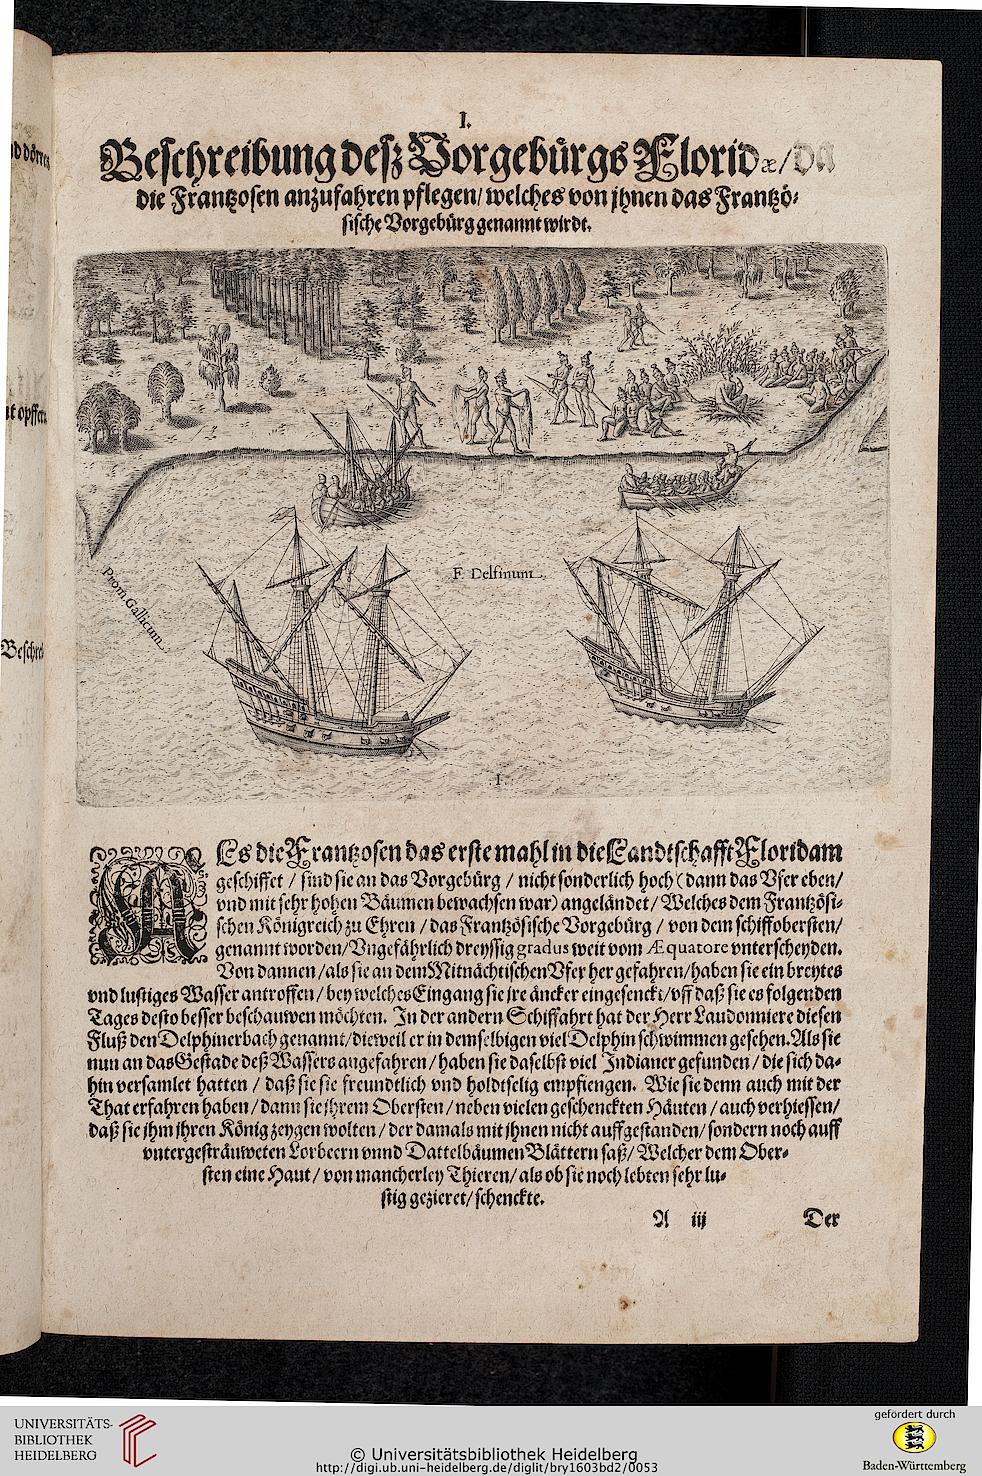 I.
Beschreibung deß Vorgebürgs Floridæ/ da
die Frantzosen anzufahren pflegen/ welches von jhnen das Frantzö⸗
sische Vorgebürg genannt wirdt.
F. Delfinum.
Prom. Gallicum.
.I.
ALs die Frantzosen das erste mahl in die Landtschafft Floridam
geschiffet / sind sie an das Vorgebürg / nicht sonderlich hoch (dann das Vfer eben/
vnd mit sehr hohen Bäumen bewachsen war) angeländet / Welches dem Frantzösi⸗
schen Königreich zu Ehren / das Frantzösische Vorgebürg / von dem schiffobersten/
genannt worden/ Vngefährlich dreyssig gradus weit vom Æquatore vnterscheyden.
Von dannen / als sie an dem Mitnächtischen Vfer her gefahren/ haben sie ein breytes
vnd lustiges Wasser antroffen / bey welches Eingang sie jre äncker eingesenckt/ vff daß sie es folgenden
Tages desto besser beschauwen möchten. In der andern Schiffahrt hat der Herr Laudonniere diesen
Fluß den Delphinerbach genannt/ dieweil er in demselbigen viel Delphin schwimmen gesehen. Als sie
nun an das Gestade deß Wassers angefahren / haben sie daselbst viel Indianer gefunden / die sich da⸗
hin versamlet hatten / daß sie sie freundtlich vnd holdtselig empfiengen. Wie sie denn auch mit der
That erfahren haben / dann sie jhrem Obersten / neben vielen geschenckten Häuten / auch verhiessen/
daß sie jhm jhren König zeygen wolten / der damals mit jhnen nicht auffgestanden/ sondern noch auff
vntergesträuweten Lorbeern vnnd Dattelbäumen Blättern saß/ Welcher dem Ober⸗
sten eine Haut / von mancherley Thieren/ als ob sie noch lebten sehr lu⸗
stig gezieret/ schenckte.
A iij Der
UNIVERSITÄTS-
BIBLIOTHEK
HEIDELBERG
© Universitätsbibliothek Heidelberg
http://digi.ub.uni-heidelberg.de/diglit/bry1603bd2/0053
gefördert durch
Baden-Württemberg